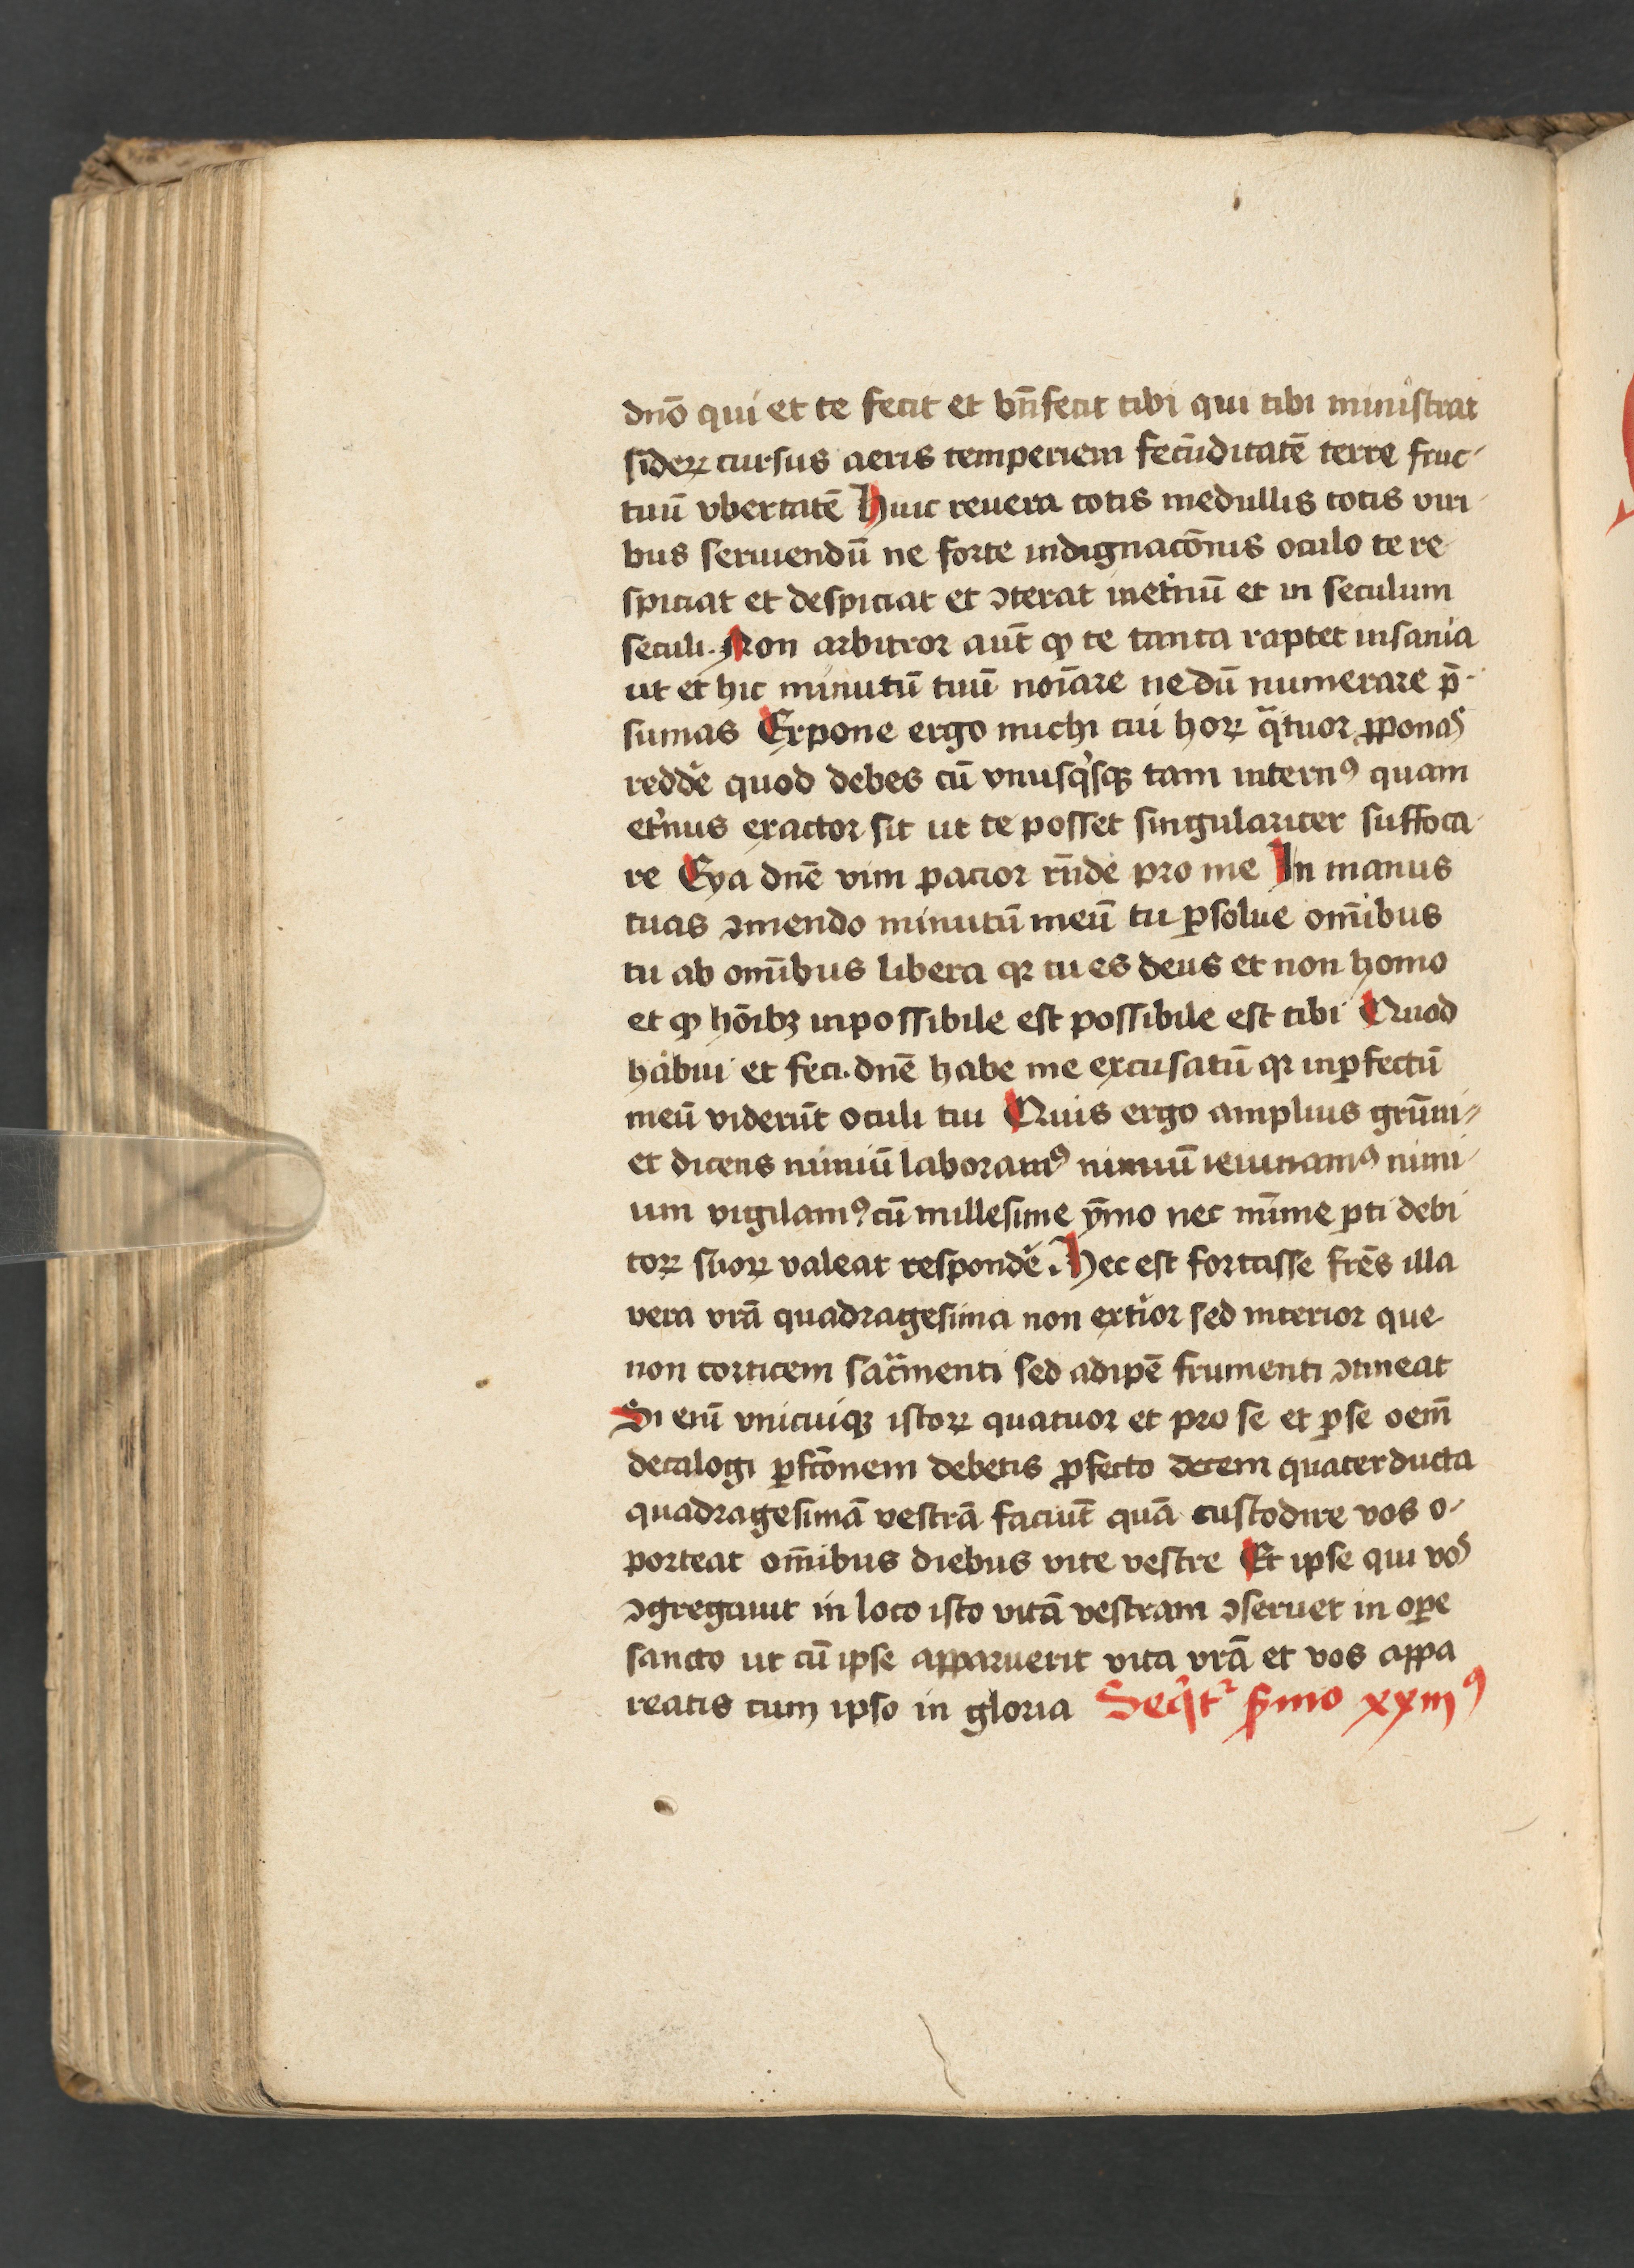 dnō qui et te fecit et bn̄fecit tibi qui tibi ministrat
sideꝝ cursus aeris temperiem fecūditatē terre fruc-
tuū vbertatē Huic reuera totis medullis totis viri-
bus seruiendū ne forte indignacōnis oculo te re-
spiciat et despiciat et ꝯterat inet͛nū et in seculum
seculi. Non arbitror aut̄ ꝙ te tanta raptet insania
ut et hic minutū tuū noīare nedū numerare p̄-
sumas Expone ergo michi cui hoꝝ qᵃtuor ꝓponas
redde͛ quod debes cū vnusqⁱsqꝫ tam internꝰ quam
et͛nus exactor sit ut te posset singulariter suffoca-
re Eya dnē vim pacior rn̄de pro me In manus
tuas ꝯmendo minutū meū tu ꝑsolue om̄ibus
tu ab om̄ibus libera qꝛ tu es deus et non homo
et ꝙ hōibꝫ inpossibile est possibile est tibi Quod
habui et feci. dnē habe me excusatū qꝛ inꝑfectū
meū viderūt oculi tui Quis ergo amplius grūni-
et dicens nimiū laboramꝰ nimiū ieiunamꝰ nimi-
um vigilamꝰ cū millesime ȳmo nec mīme ꝑti debi
toꝝ suoꝝ valeat responde͛. Hec est fortasse frēs illa
vera vrā quadragesima non ext͛ior sed interior que
non corticem sacᵃmenti sed adipē frumenti ꝯtineat
Si enī vnicuiqꝫ istoꝝ quatuor et pro se et ꝑ se oem̄
decalogi ꝑfcōnem debetis ꝓfecto decem quater ducta
quadragesimā vestrā faciūt quā custodire vos o-
porteat om̄ibus diebus vite vestre Et ipse qui vos
ꝯgregauit in loco isto vitā vestram ꝯseruet in oꝑe
sancto ut cū ipse apparuerit vita vrā et vos appa
reatis cum ipso in gloria Seqⁱtᷣ s͛mo xxiiiꝰ